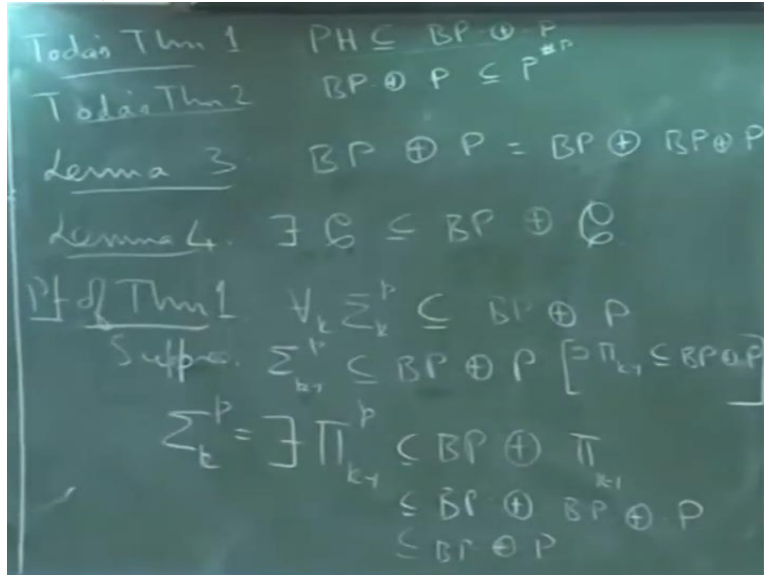 Toda's Thm 1 PH ⊆ BP·⊕·P
Toda's Thm 2 BP·⊕ P ⊆ P^{#P}
Lemma 3 BP ⊕ P = BP ⊕ BP⊕P
Lemma 4. ∃ 𝒞 ⊆ BP ⊕ 𝒞
Pf of Thm 1 ∀_k Σ_k^p ⊆ BP ⊕ P
Suppose. Σ_{k-1}^p ⊆ BP ⊕ P [⊃ Π_{k-1} ⊆ BP⊕P]
Σ_k^p = ∃ Π_{k-1}^p ⊆ BP ⊕ Π_{k-1}
⊆ BP ⊕ BP ⊕ P
⊆ BP ⊕ P